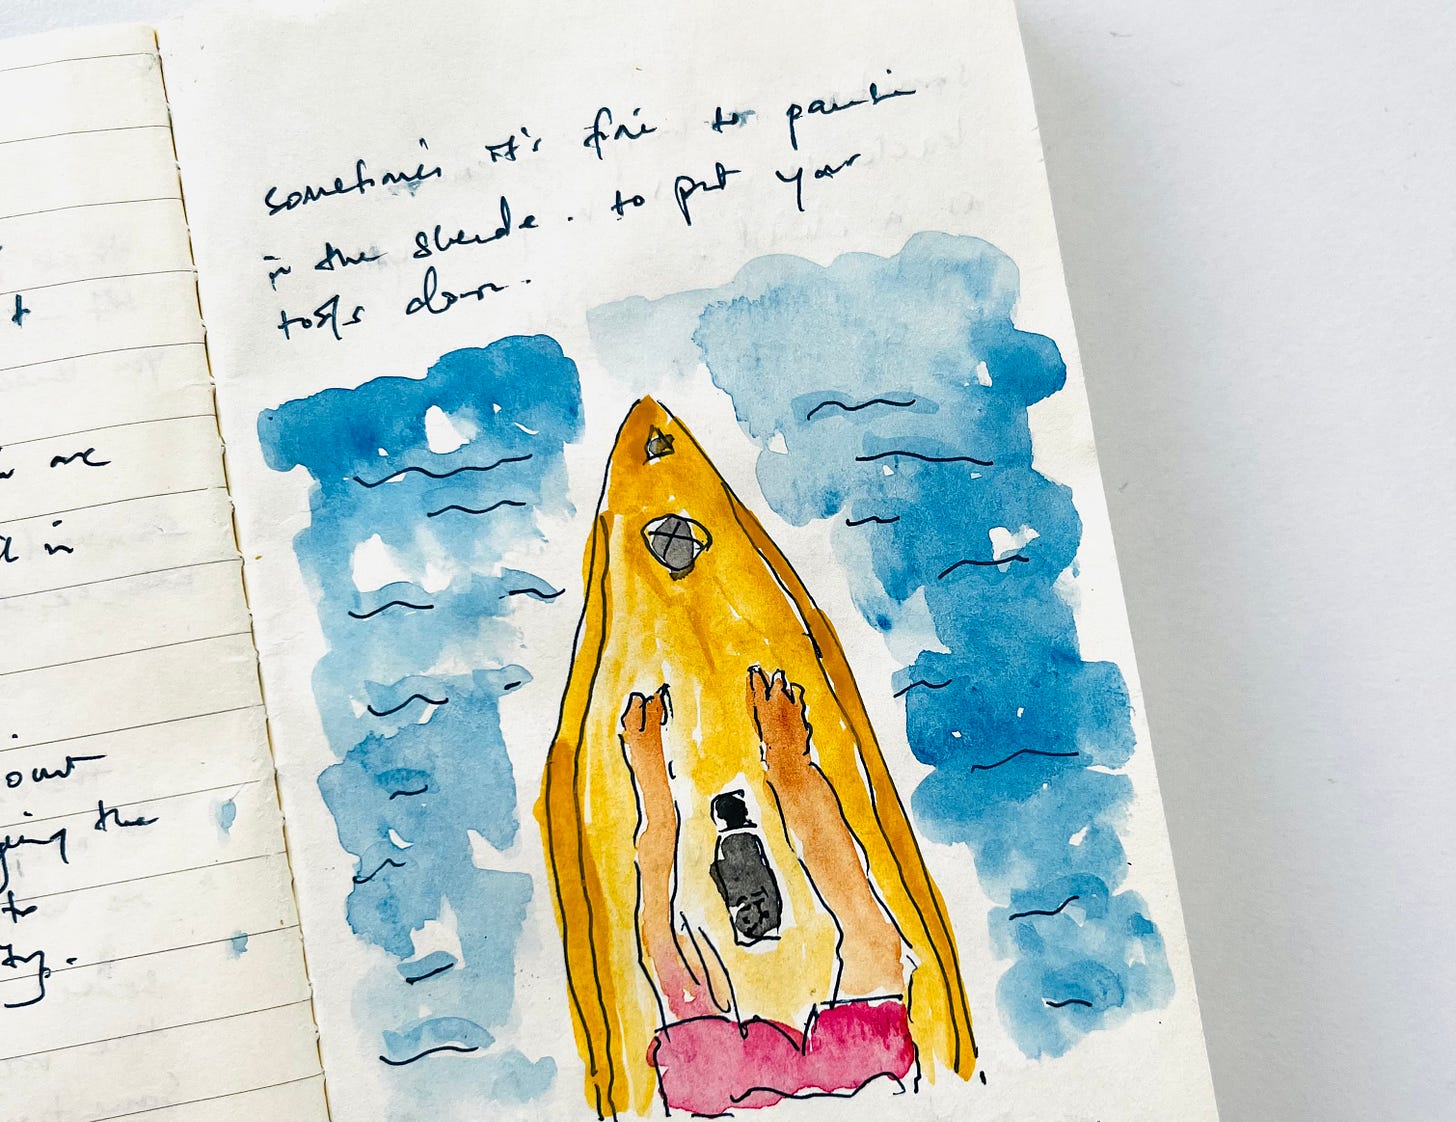 t
are
in
out
the
to
sometimes it's fine to pause
in the shade. to put your
tools down.